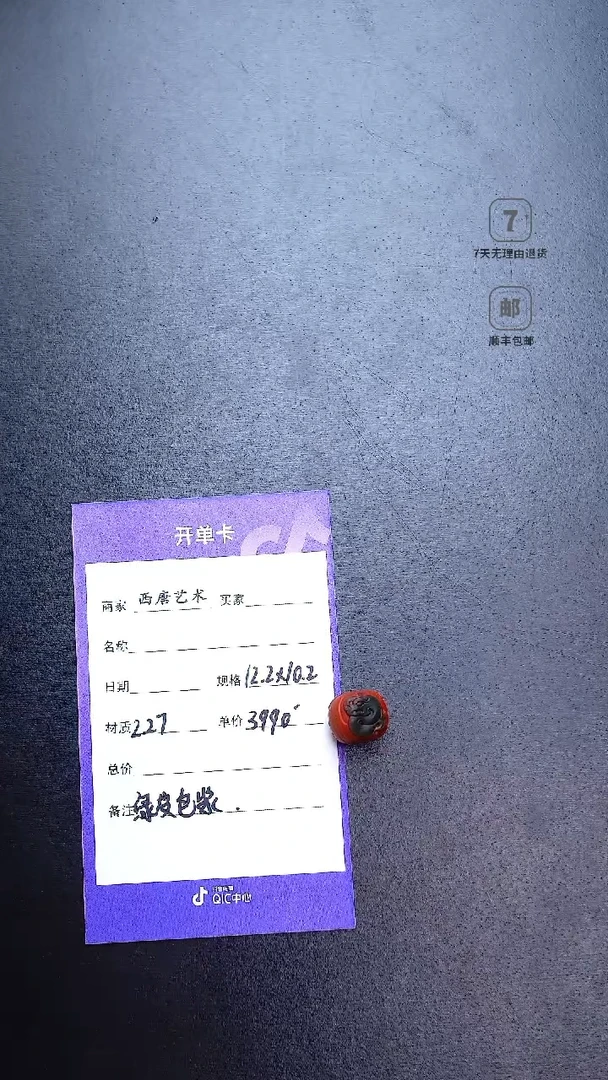 7
7天无理由退货
邮
顺丰包邮
开单卡
商家 西唐艺术 买家
名称
日期 规格 12.2x10.2
材质 227 单价 3990
总价
备注 绿皮包浆.
QIC中心